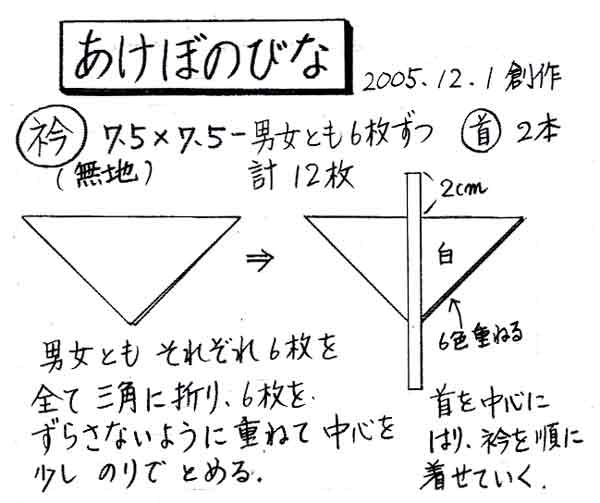 あけぼのびな
2005.12.1 創作
衿 7.5×7.5－男女とも6枚ずつ 首 2本
(無地) 計 12枚
2cm
⇒
白
6色重ねる
男女とも それぞれ6枚を
全て 三角に折り、6枚を
ずらさないように重ねて 中心を
少し のりで とめる.
首を中心に
はり、衿を順に
着せていく.